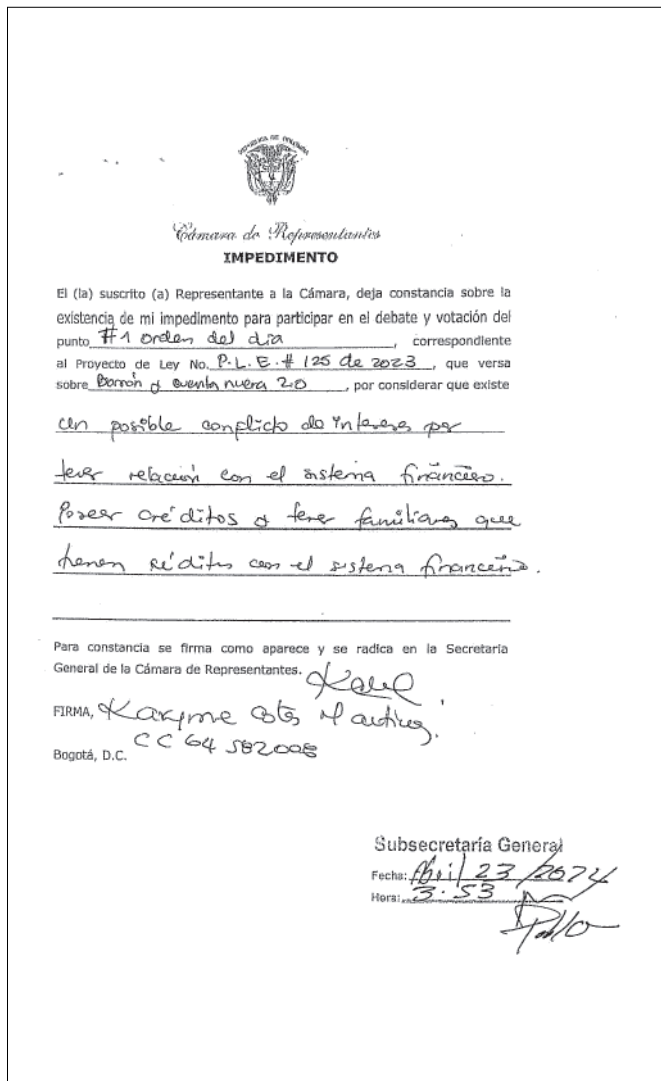 REPUBLICA DE COLOMBIA
Cámara de Representantes
IMPEDIMENTO
El (la) suscrito (a) Representante a la Cámara, deja constancia sobre la
existencia de mi impedimento para participar en el debate y votación del
punto #1 orden del día, correspondiente
al Proyecto de Ley No. P.L.E. # 125 de 2023, que versa
sobre Borrón y cuenta nueva 2.0, por considerar que existe
un posible conflicto de intereses por
tener relación con el sistema financiero.
Poseer créditos y tener familiares que
tienen créditos con el sistema financiero.
Para constancia se firma como aparece y se radica en la Secretaría
General de la Cámara de Representantes.
FIRMA, Karyme Cotes Martínez.
CC 64 582008
Bogotá, D.C.
Subsecretaría General
Fecha: Abril 23/2024
Hora: 3:53
Pablo